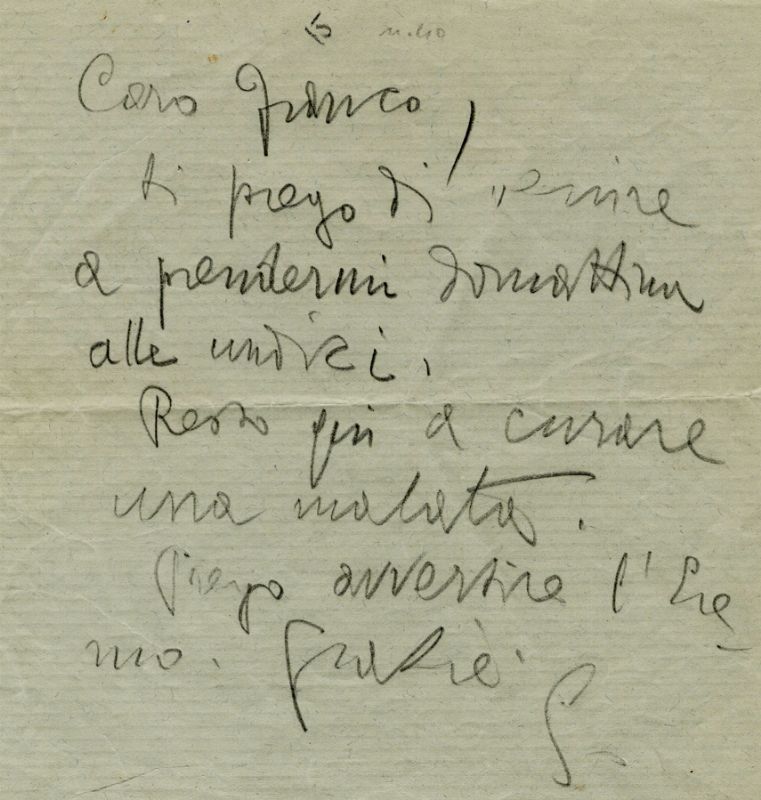 15 n. 40
Caro Franco,
ti prego di venire
a prendermi domattina
alle undici.
Resto qui a curare
una malata.
Prego avvertire l'Ere-
mo. Grazie.
G.